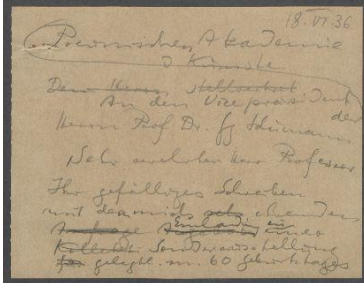 18. VI. 36
Preussischen Akademie
d Künste
Dem Herrn Stellvertret
An den Vicepräsident
der
Herrn Prof. Dr. G Schumann
Sehr verehrter Herr Professor
Ihr gefälliges Schreiben
mit der mich ehrenden
Anfrage Einladung einer
Kollekt Sonderausstellung
gelegtl. m. 60 Geburtstages